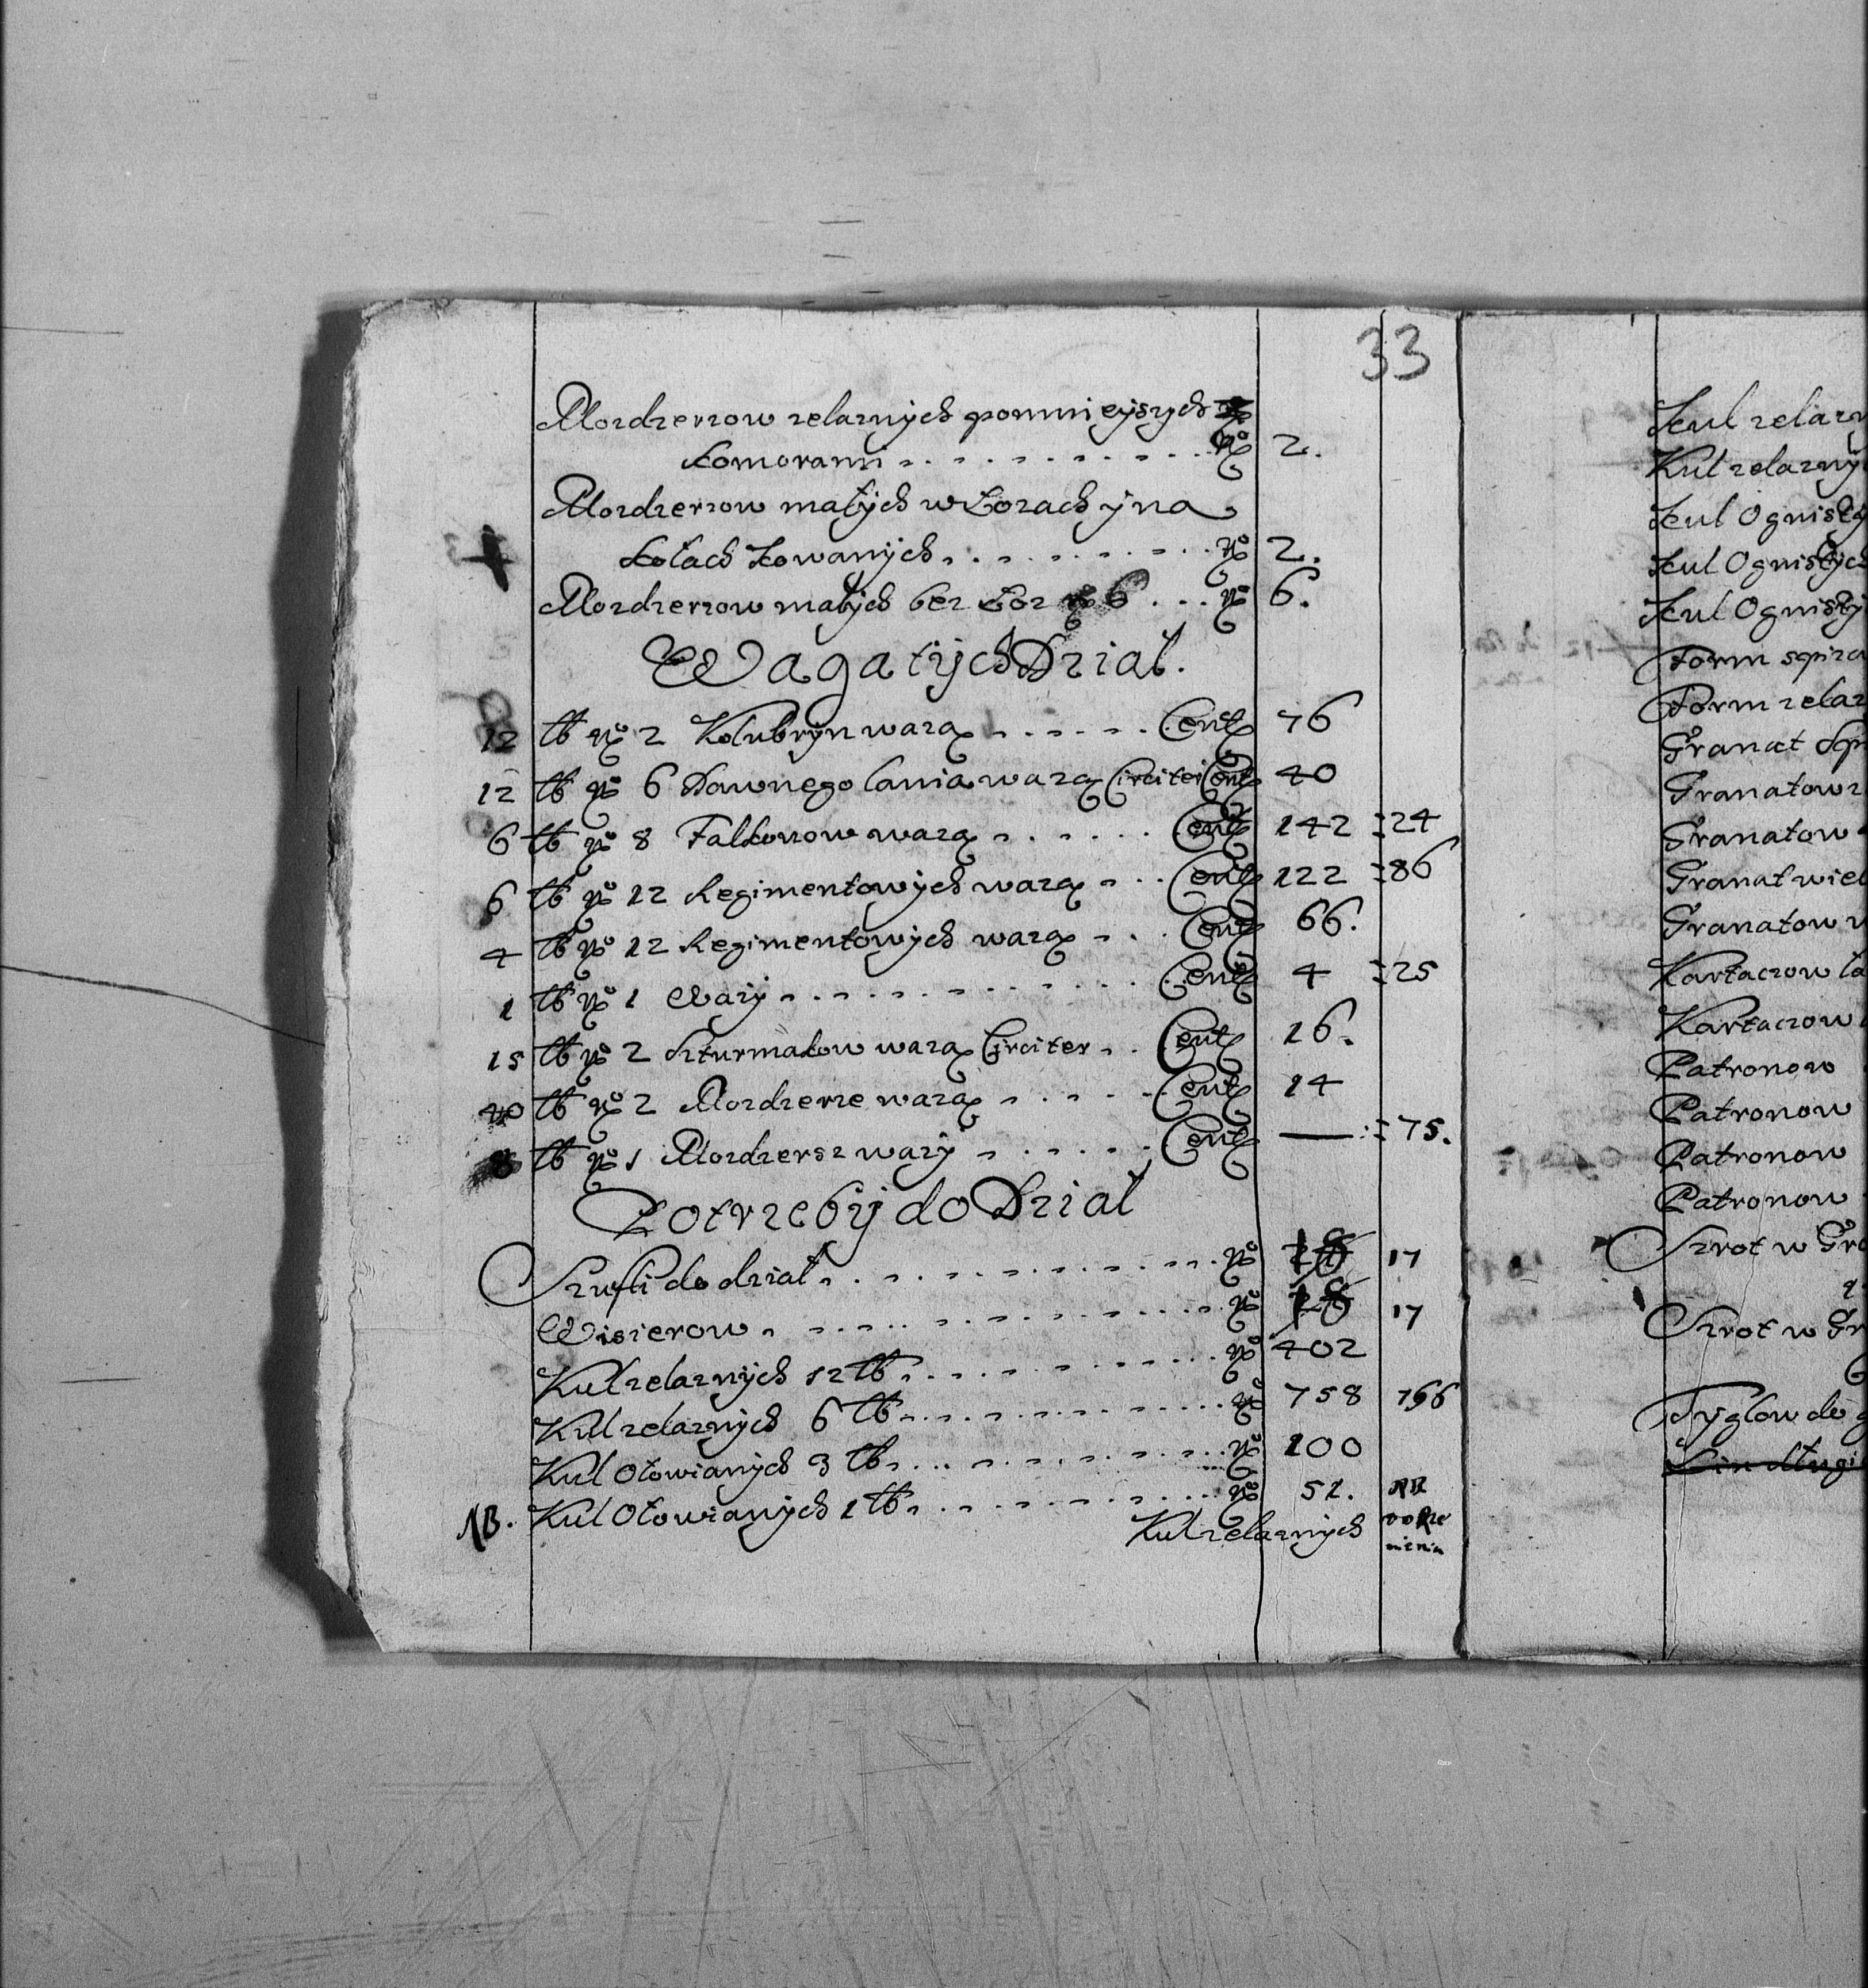 33
Mozdzerzow zelaznych pomnieyszych z
komorami . . . . . . . . . No 2.
Mozdzerzow małych w Łozach y na
kołach kowanych . . . . . . . . No 2.
Mozdzerzow małych bez Łoz No 6 . . . No 6.
Waga tych Dział.
12 tb No 2 Kolubryn wazą . . . . . . Cent 76
12 tb No 6 Dawnego lania wazą Circiter Cent 40
6 tb No 8 Falkonow wazą . . . . . . Cent 142 : 24
6 tb No 12 Regimentowych wazą . . . Cent 122 : 86
4 tb No 12 Regimentowych wazą . . . Cent 66.
1 tb No 1 Wazy . . . . . . . . . . Cent 4 : 25
15 tb No 2 Szturmakow wazą Circiter . . Cent 16.
40 tb No 2 Mozdzerze wazą . . . . . Cent 14
8 tb No 1 Mozdzersz wazy . . . . . . Cent — : 75.
Potrzeby do Dział
Szufli do dział . . . . . . . . . . No 18 17
Wisierow . . . . . . . . . . . No 18 17
Kul zelaznych 12 tb . . . . . . . . . No 402
Kul zelaznych 6 tb . . . . . . . . . No 758 766
Kul Ołowianych 3 tb . . . . . . . . . No 100
NB. Kul Ołowianych 1 tb . . . . . . . . . No 51. NB
Kul zelaznych
Kul zelazn
Kul zelazny
Kul Ognisty
Kul Ognistych
Kul Ognisty
Form spiza
Form zelaz
Granat Spi
Granatow z
Granatow
Granat wiel
Granatow w
Kartaczow ła
Kartaczow
Patronow
Patronow
Patronow
Patronow
Szrot w Gra
Szrot w Gr
Tyglow do g
Lin długi